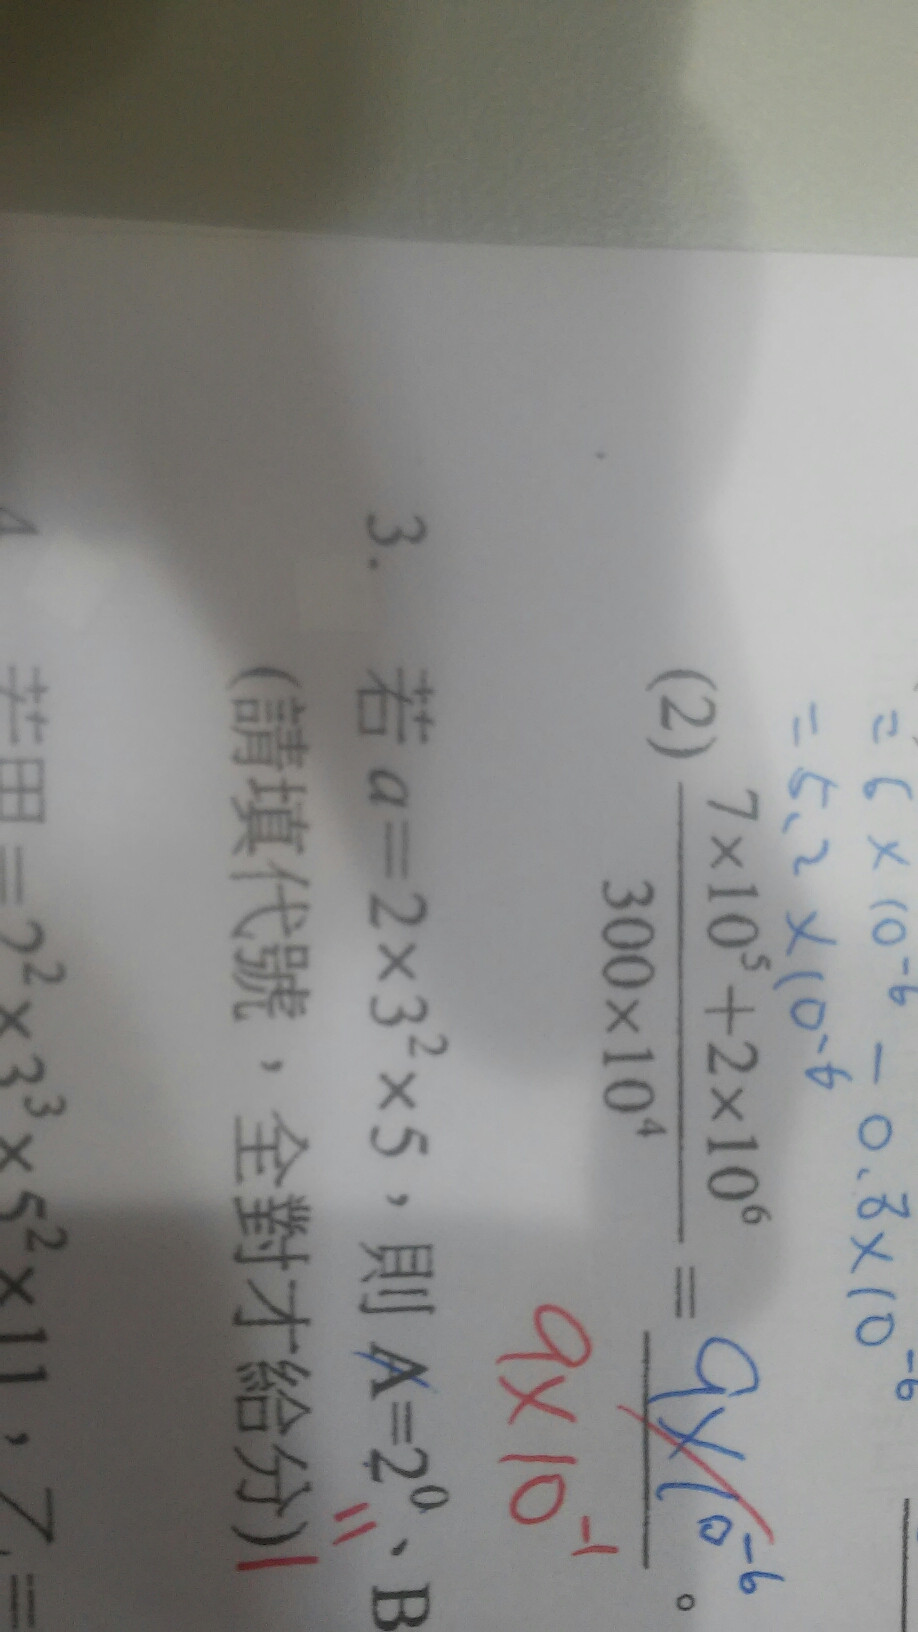 = 6 × 10⁻⁶ - 0.8 × 10⁻⁶
= 5.2 × 10⁻⁶
(2) (7×10⁵+2×10⁶)/(300×10⁴) = 9×10⁻⁶ 。
9×10⁻¹
3. 若 a=2×3²×5,則 A=2⁰、B
(請填代號,全對才給分)
若甲=2²×3³×5²×11,乙=